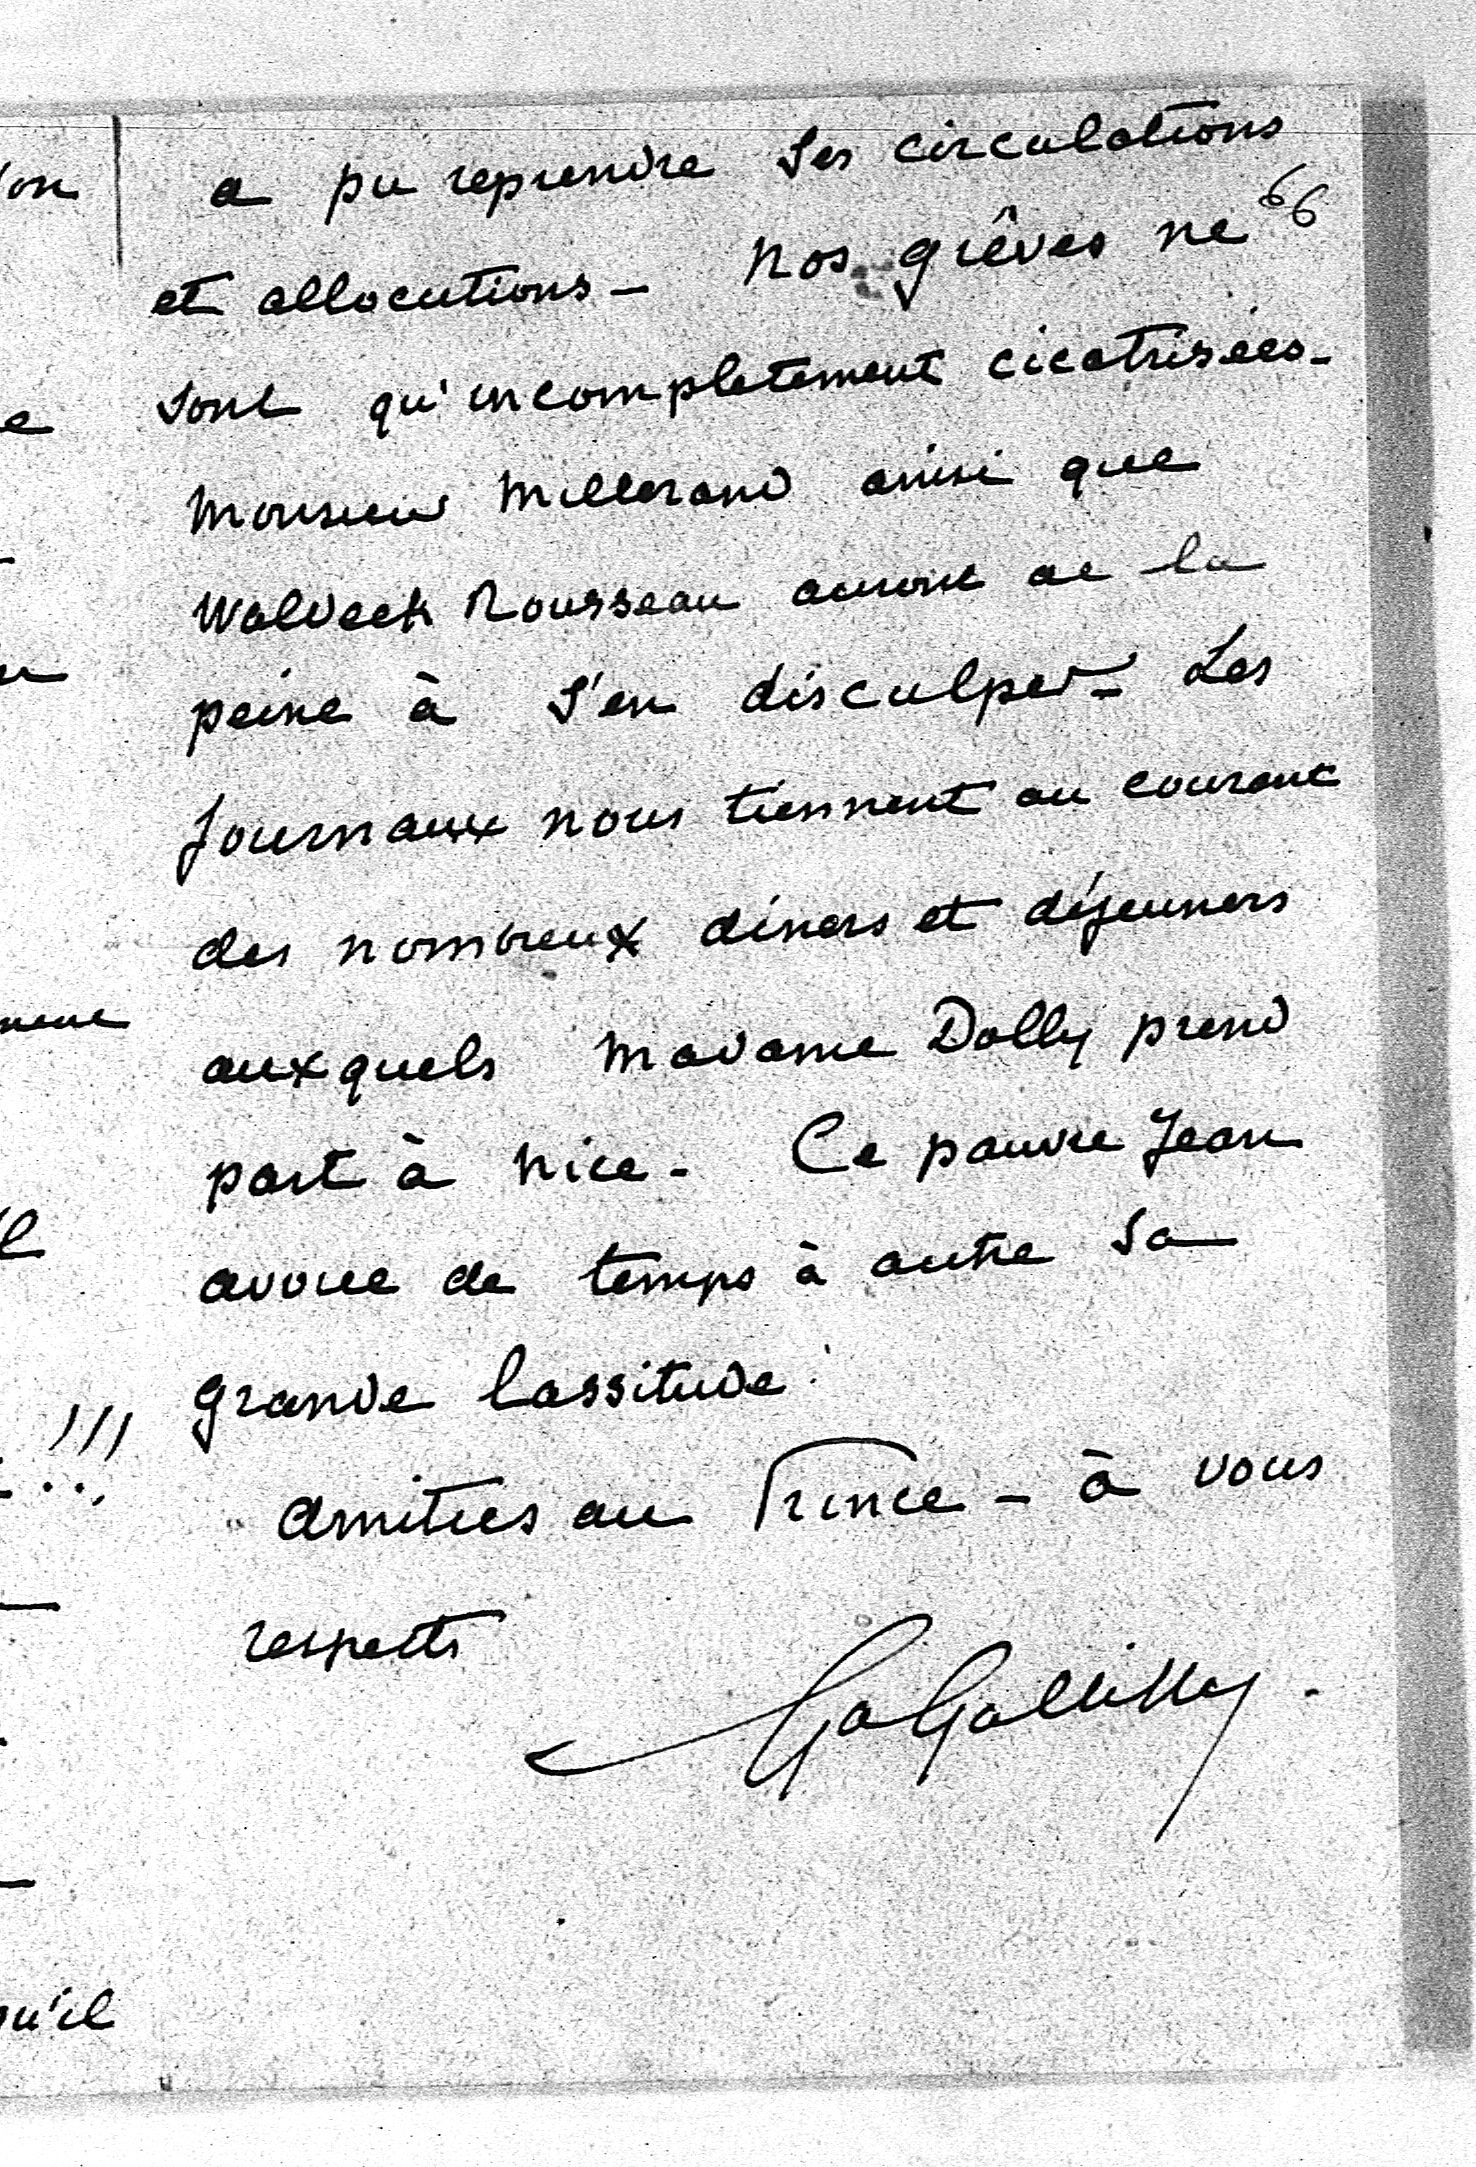 a pu reprendre ses circulations
66
et allocutions - Nos grêves ne
sont qu'incompletement cicatrisées -
Monsieur Millerand ainsi que
Waldeck Rousseau auront de la
peine à s'en disculper - Les
journaux nous tiennent au courant
des nombreux diners et déjeuners
auxquels Madame Dolly prend
part à Nice - Ce pauvre Jean
avoue de temps à autre sa
grande lassitude!
Amitiés au Prince - à vous
respects
Ga Galliffet.
on
e
!!!
qu'il